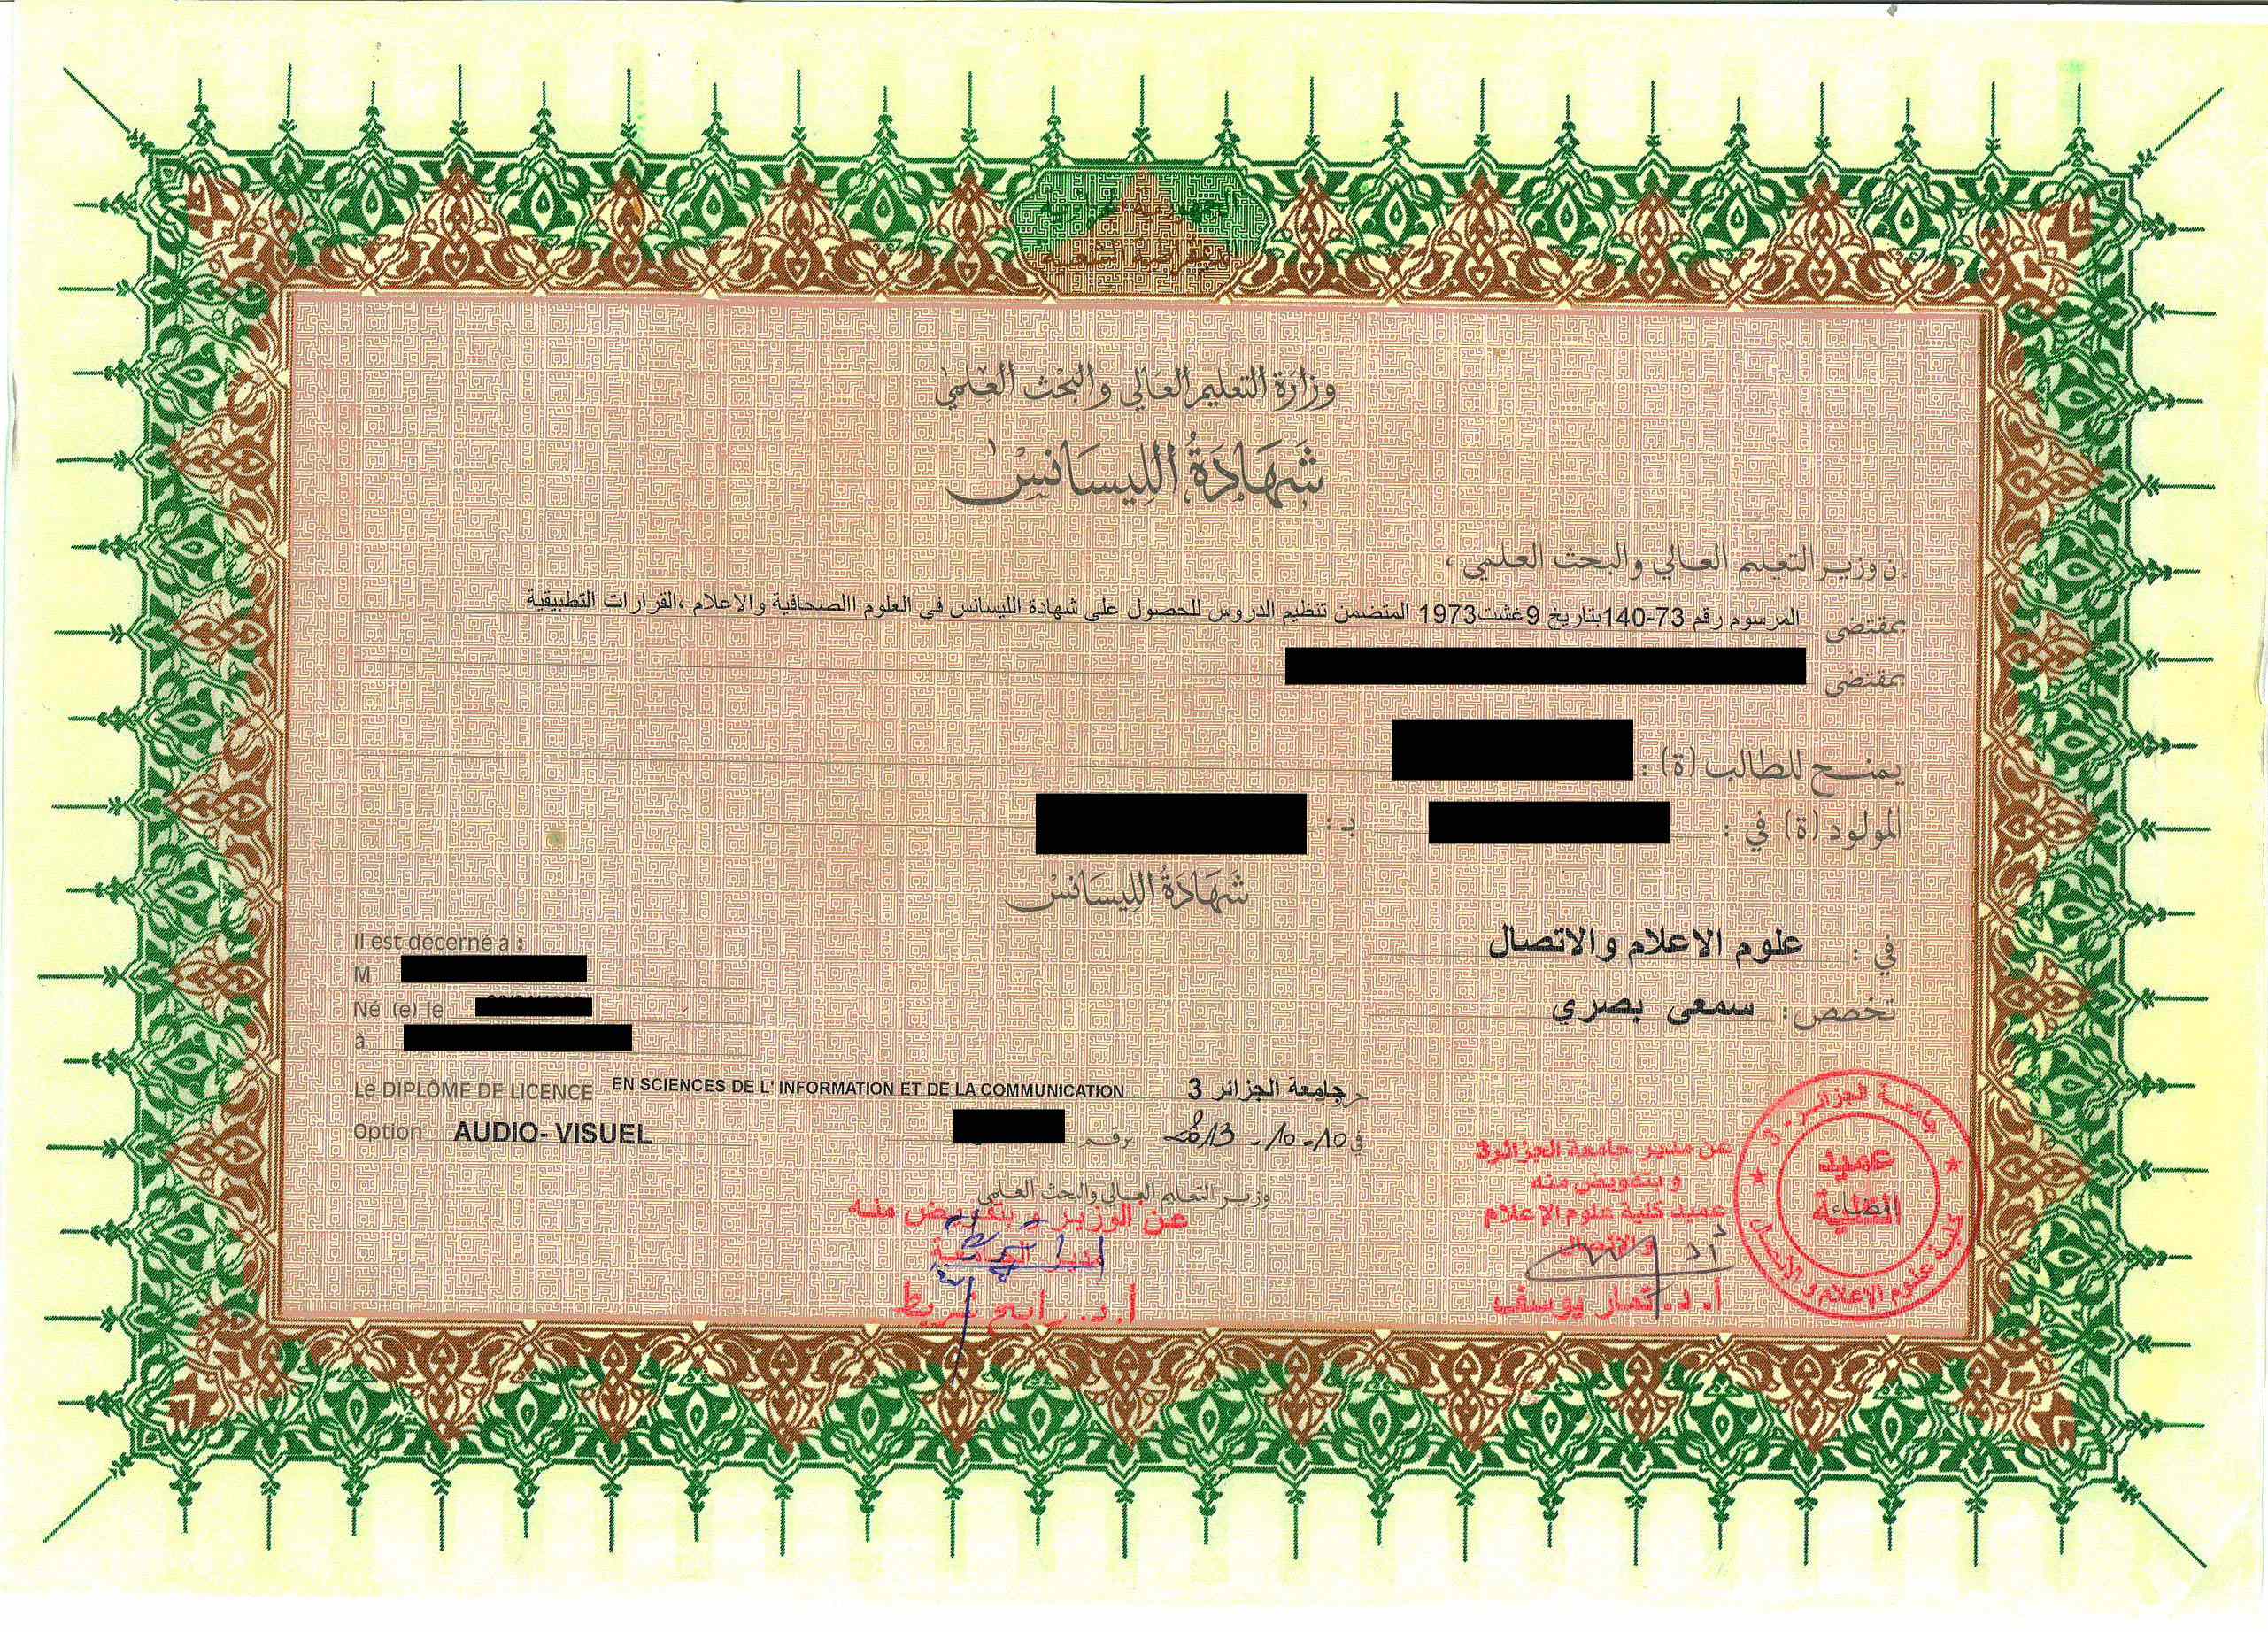 الجمهورية الجزائرية
الديمقراطية الشعبية
وزارة التعليم العالي والبحث العلمي
شهادة الليسانس
إن وزير التعليم العالي والبحث العلمي ،
بمقتضى المرسوم رقم 73-140بتاريخ 9غشت1973 المتضمن تنظيم الدروس للحصول على شهادة الليسانس في العلوم االصحافية والاعلام ،القرارات التطبيقية
بمقتضى
يمنح للطالب (ة) :
المولود (ة) في : بـ :
شهادة الليسانس
في : علوم الاعلام والاتصال
تخصص: سمعى بصري
Il est décerné à :
M
Né (e) le
à
Le DIPLÔME DE LICENCE EN SCIENCES DE L' INFORMATION ET DE LA COMMUNICATION
Option AUDIO- VISUEL
جامعة الجزائر 3
في 10-10-2013 برقم
وزير التعليم العالي والبحث العلمي
عن الوزير و بتفويض منه
مدير الجامعة
أ.د. رابح شريط
عن مدير جامعة الجزائر3
و بتفويض منه
عميد كلية علوم الإعلام
والإتصال
أ.د.تمار يوسف
جامعة الجزائر - 3
عميد
الكلية
كلية علوم الإعلام و الإتصال